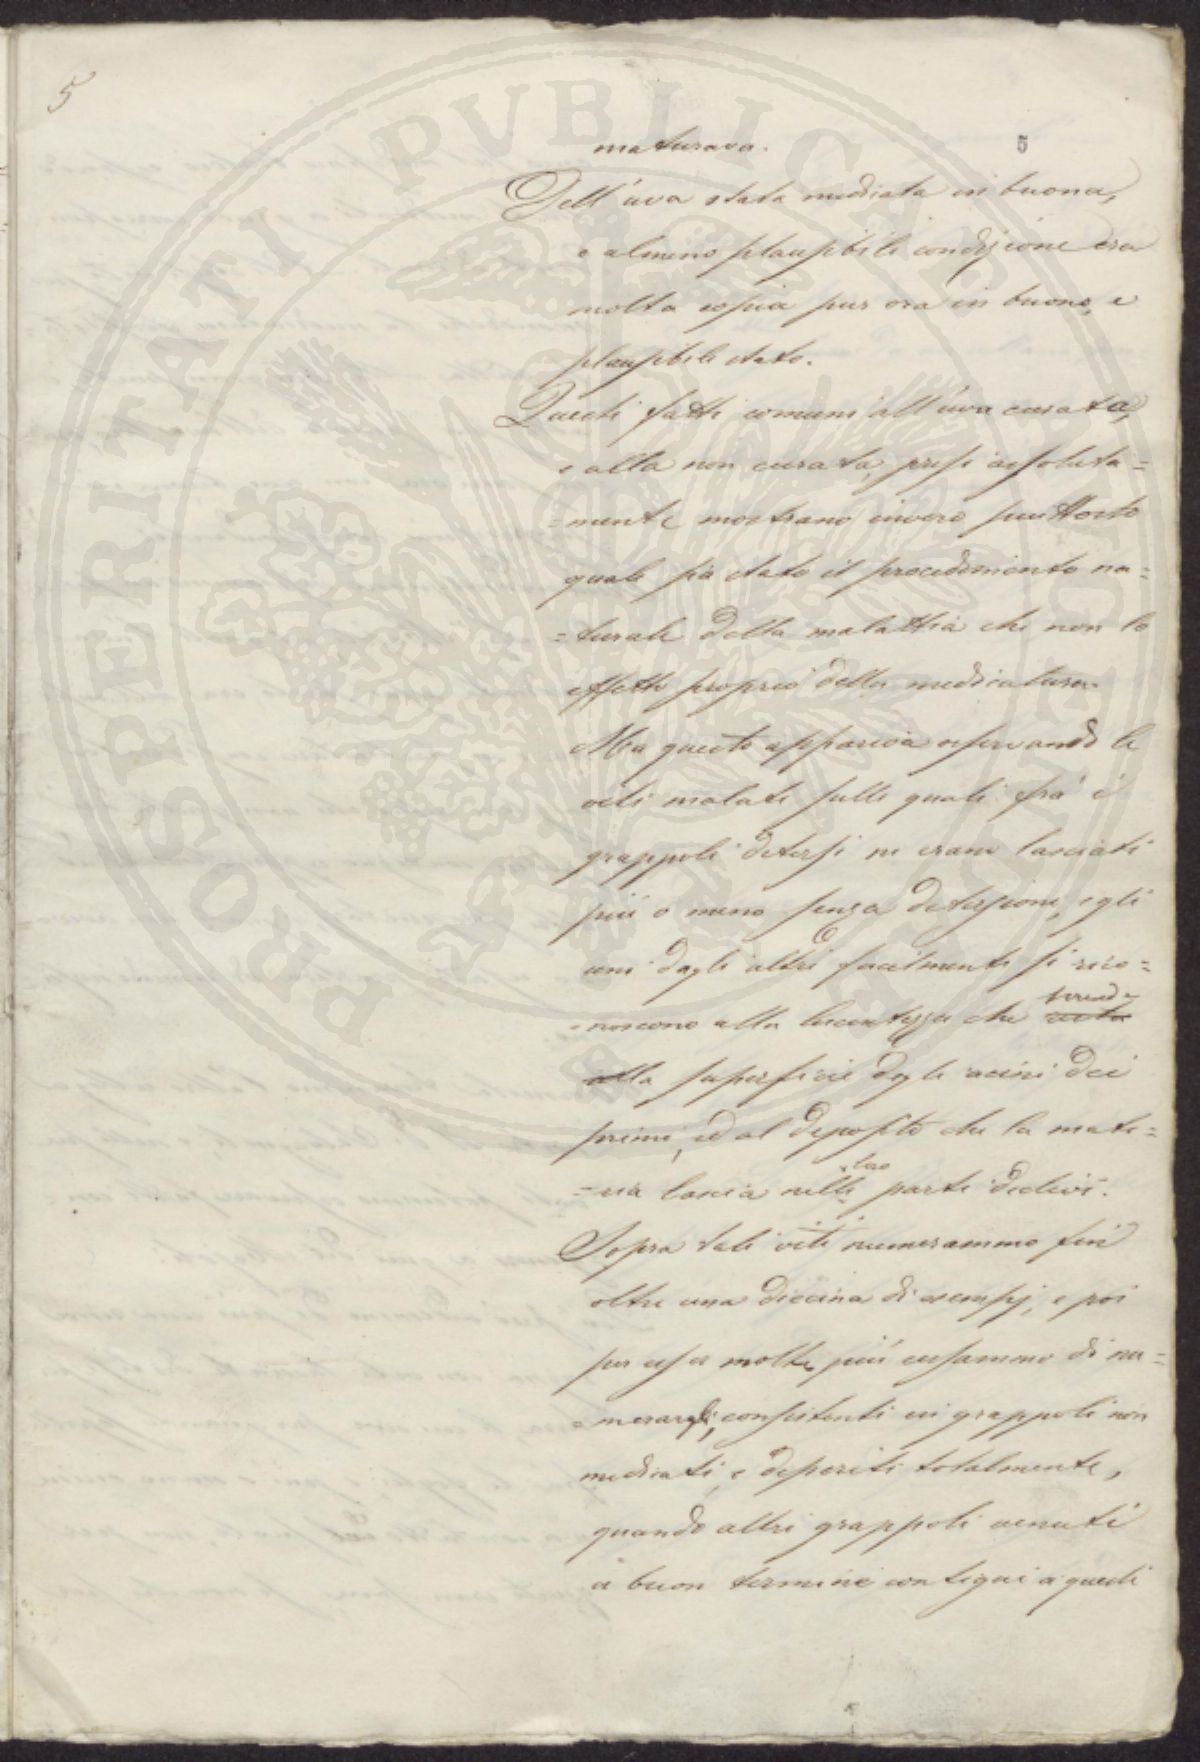 5
5
maturava.
Dell'uva stata mediata in buona,
e almeno plausibile condizione era
molta copia pur ora in buono, e
plausibile stato.
Questi fatti comuni all'uva curata,
e alla non curata, presi assoluta=
=mente mostrano invero piuttosto
quale sia stato il procedimento na=
=turale della malattia che non lo
effetto proprio della medicatura.
Ma questo appariva osservando le
viti malate sulle quali frà i
grappoli detersi ne erano lasciati
più o meno senza detersione, e gli
uni dagli altri facilmente si rico=
=noscono alla lucentezza che
alla superficie degli acini dei
primi, ed al deposito che la mate=
=ria lascia nelle loro parti declivi.
Sopra tali viti numerammo fin
oltre una diecina di esempj, e poi
per esser molti più cessammo di nu=
=merarli, consistenti in grappoli non
medicati, e deperiti totalmente,
quando altri grappoli venuti
a buon termine contigui a questi
PROSPERITATI PVBLICAE AVGENDAE